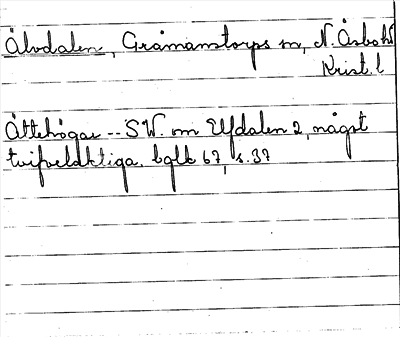 Älvdalen, Gråmanstorps sn, N. Åsbo hd
Krist. l
Ättehögar -- SW. om Elfdalen 2, något
tvifvelaktiga. bglb 67, s. 37